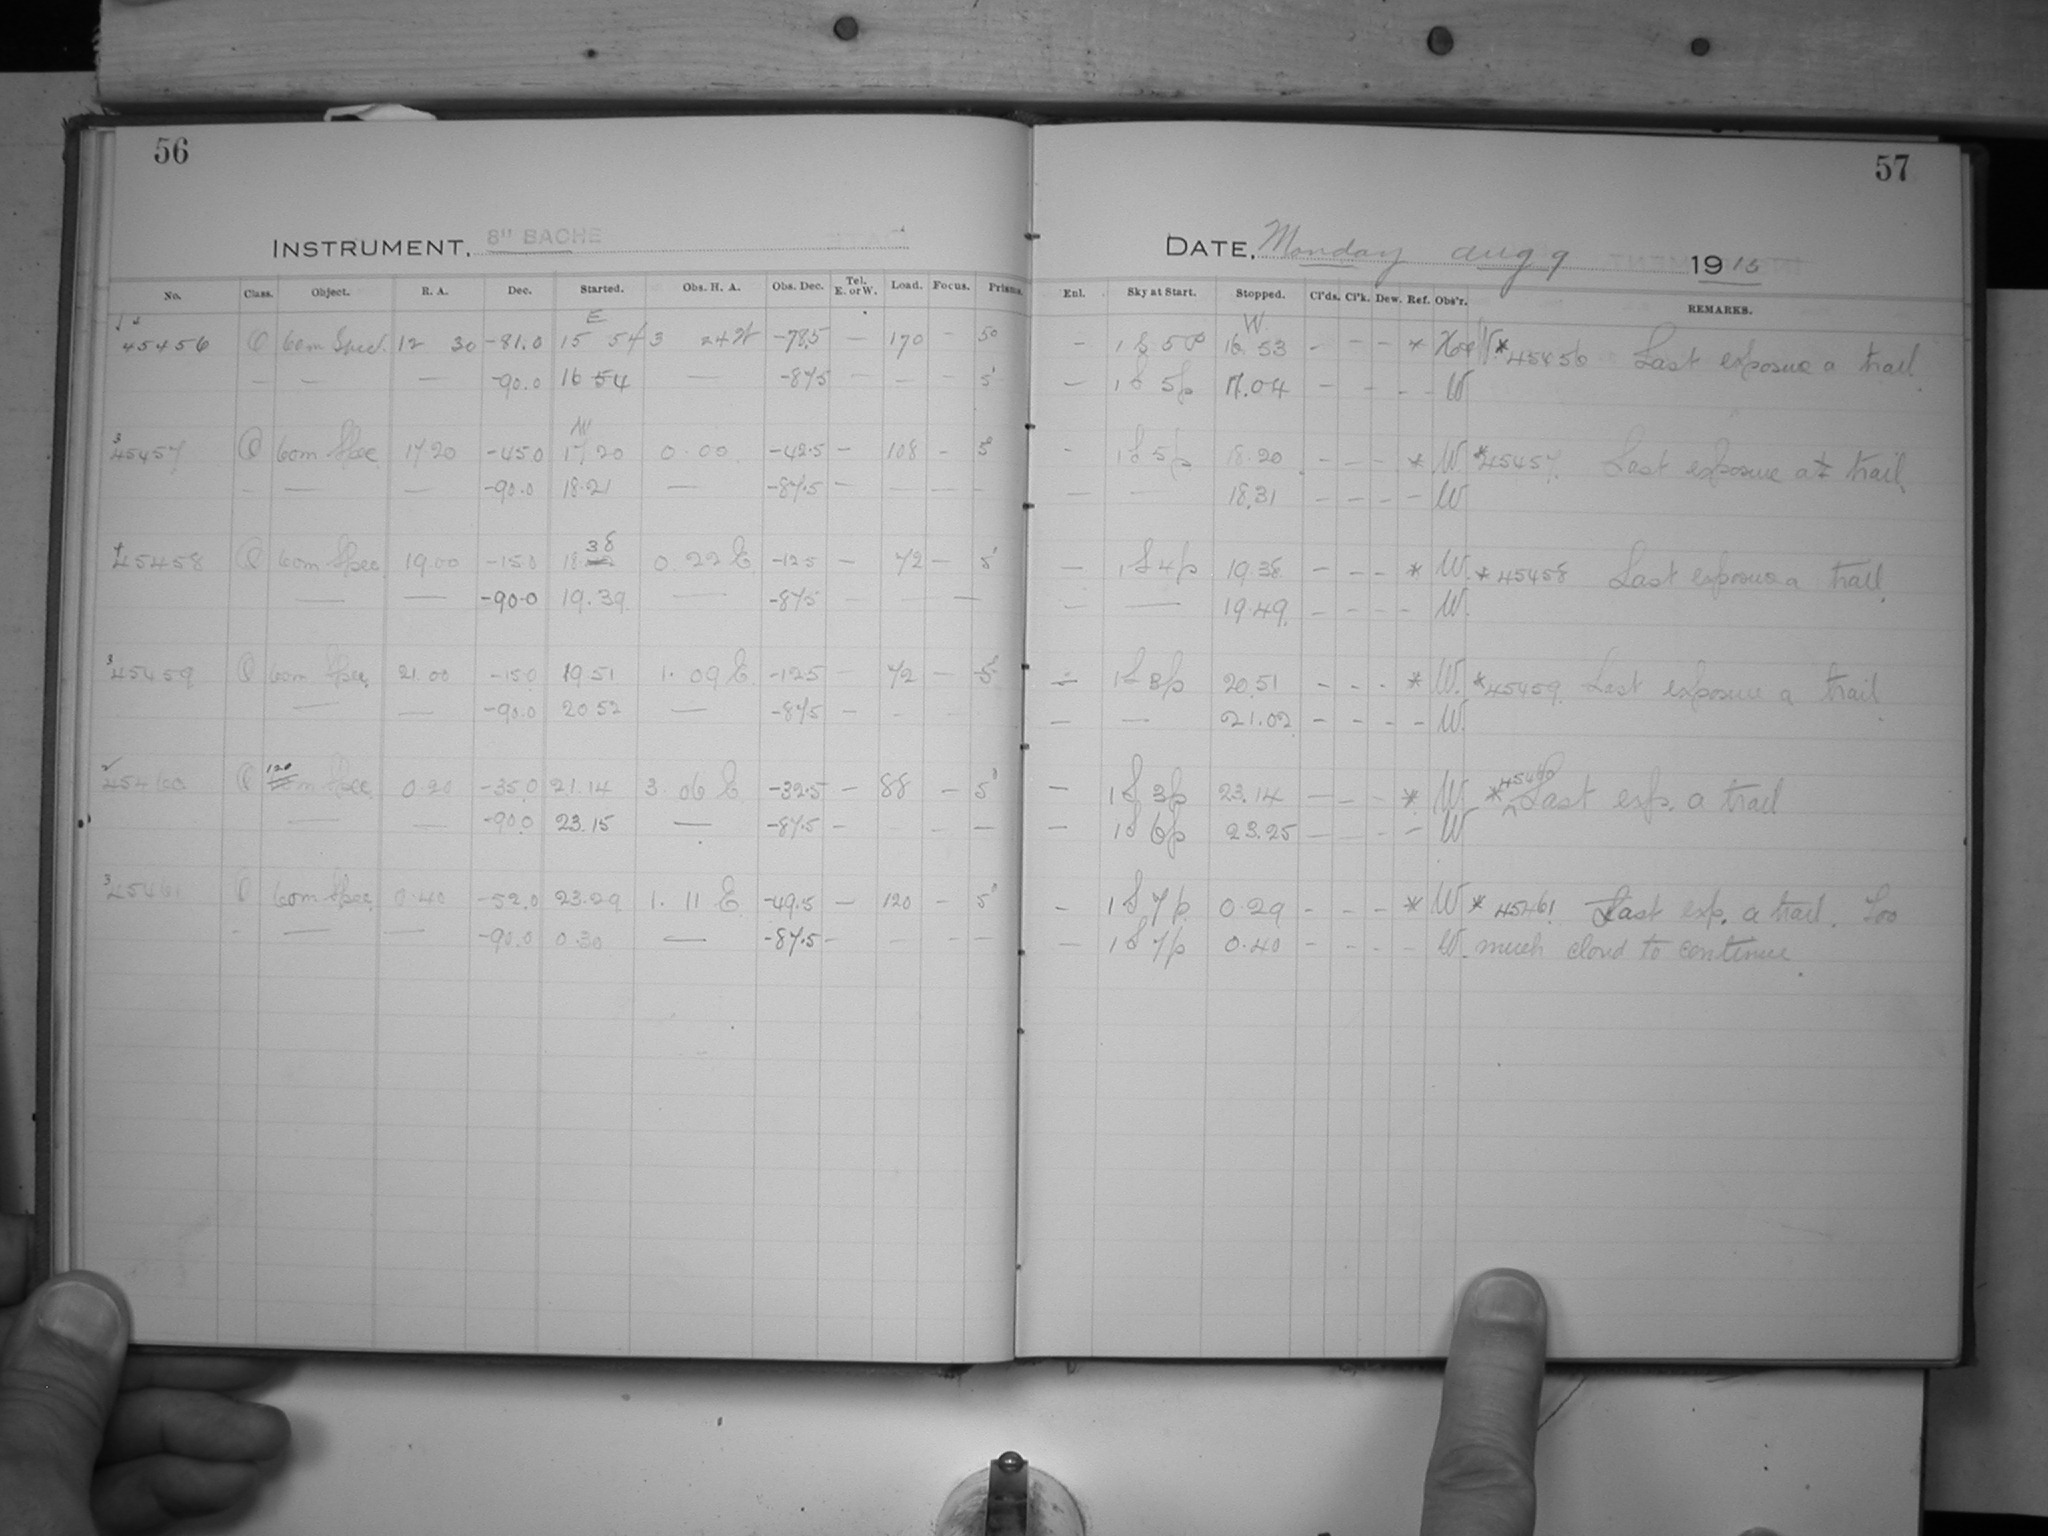 56
57
INSTRUMENT, 8" BACHE
DATE, Monday Aug 9 1915
No. Class. Object. R. A. Dec. Started. Obs. H. A. Obs. Dec. Tel. E. or W. Load. Focus. Prisms.
Enl. Sky at Start. Stopped. Cl'ds. Cl'k. Dew. Ref. Obs'r. REMARKS.
E
W
45456 60m Spec. 12 30 -81.0 15 54 3 24 W -78.5 — 170 — 5°
- 1 S 5 P 16.53 - - - * W * 45456 Last exposure a trail.
— — — -90.0 16 54 — -87.5 — — — 5°
— 1 S 5p 17.04 - - - - W
45457 60m Spec 17 20 -45.0 17 20 0.00 -42.5 — 108 - 5°
- 1 S 5p 18.20 - - - * W * 45457. Last exposure a trail.
- — — -90.0 18.21 — -87.5 — — — -
— — 18.31 - - - - W
45458 60m Spec 19.00 -15.0 18.38 0.22 E -12.5 — 72 — 5°
— 1 S 4p 19.38 - - - * W. * 45458 Last exposure a trail.
— — -90.0 19.39 — -87.5 — — —
— — 19.49. - - - - W.
45459 60m Spec. 21.00 -15.0 19.51 1.09 E -12.5 — 72 — 5°
— 20.51 - - - * W. * 45459. Last exposure a trail
— — -90.0 20 52 — -87.5 — - -
— — 21.02 - - - - W.
45460 120m Spec. 0.20 -35.0 21.14 3.06 E -32.5 — 88 — 5°
— 1 S 3p 23.14 — - - * W * 45460 Last exp. a trail
— — -90.0 23.15 — -87.5 — - - —
— 1 S 6p 23.25 — - - - W
45461 60m Spec. 0.40 -52.0 23.29 1.11 E -49.5 — 120 - 5°
- 1 S 7p 0.29 - - - * W * 45461 Last exp. a trail. Too
- — — -90.0 0.30 — -87.5 - - - —
— 1 S 7p 0.40 - - - - W. much cloud to continue.